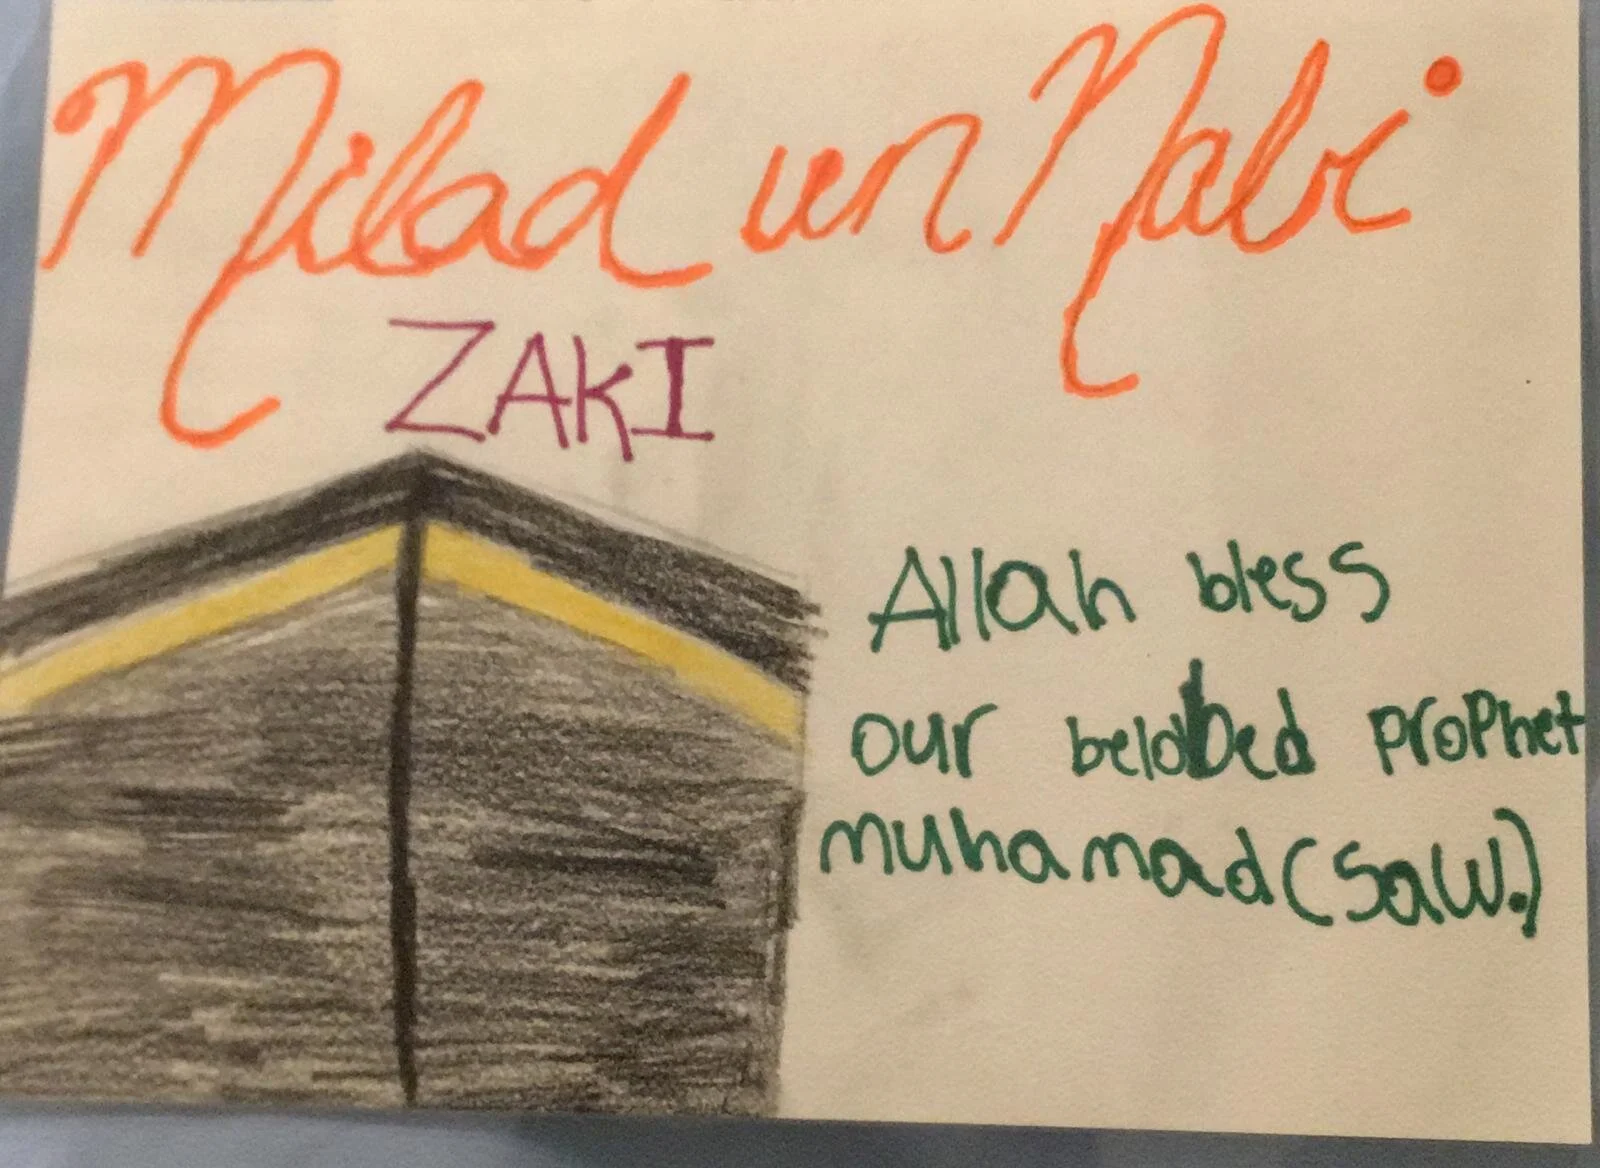 Milad un Nabi
ZAkI
Allah bless
our belobed prophet
muhamad (saw.)